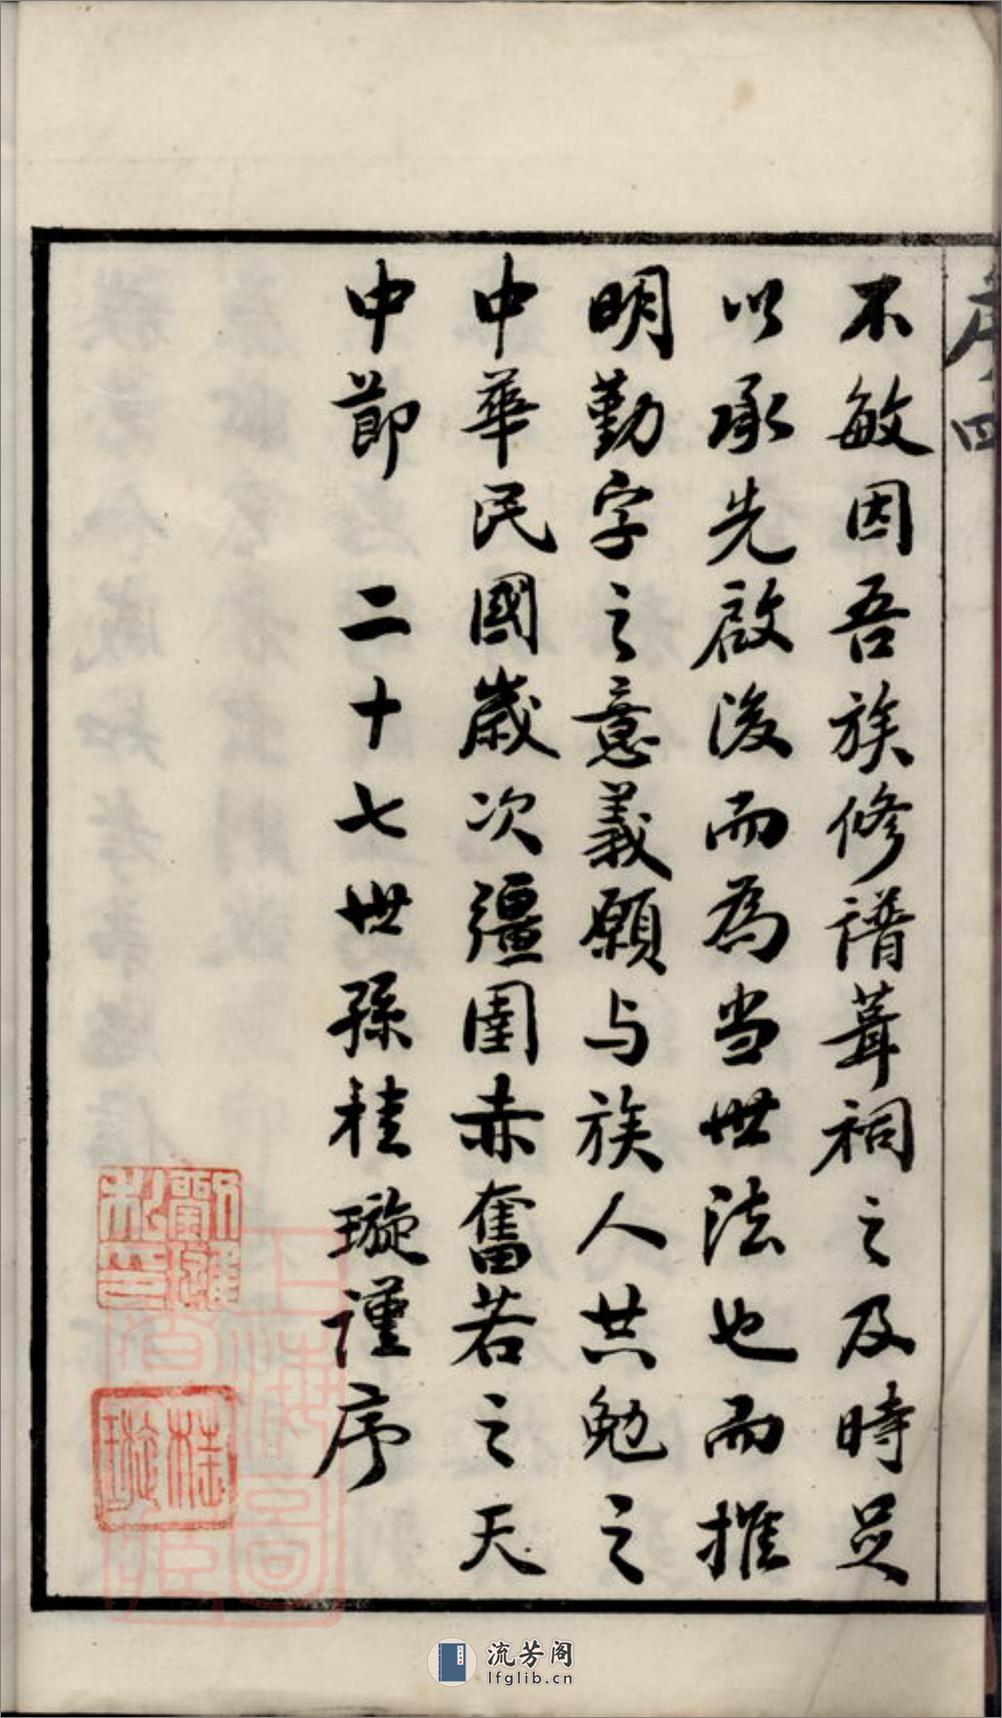 序四
不敏因吾族修譜葺祠之及時足
以承先啟後而為当世法也而推
明勤字之意義願与族人共勉之
中華民國歲次彊圉赤奮若之天
中節 二十七世孫桂璇謹序
桂璇
流芳阁
lfglib.cn